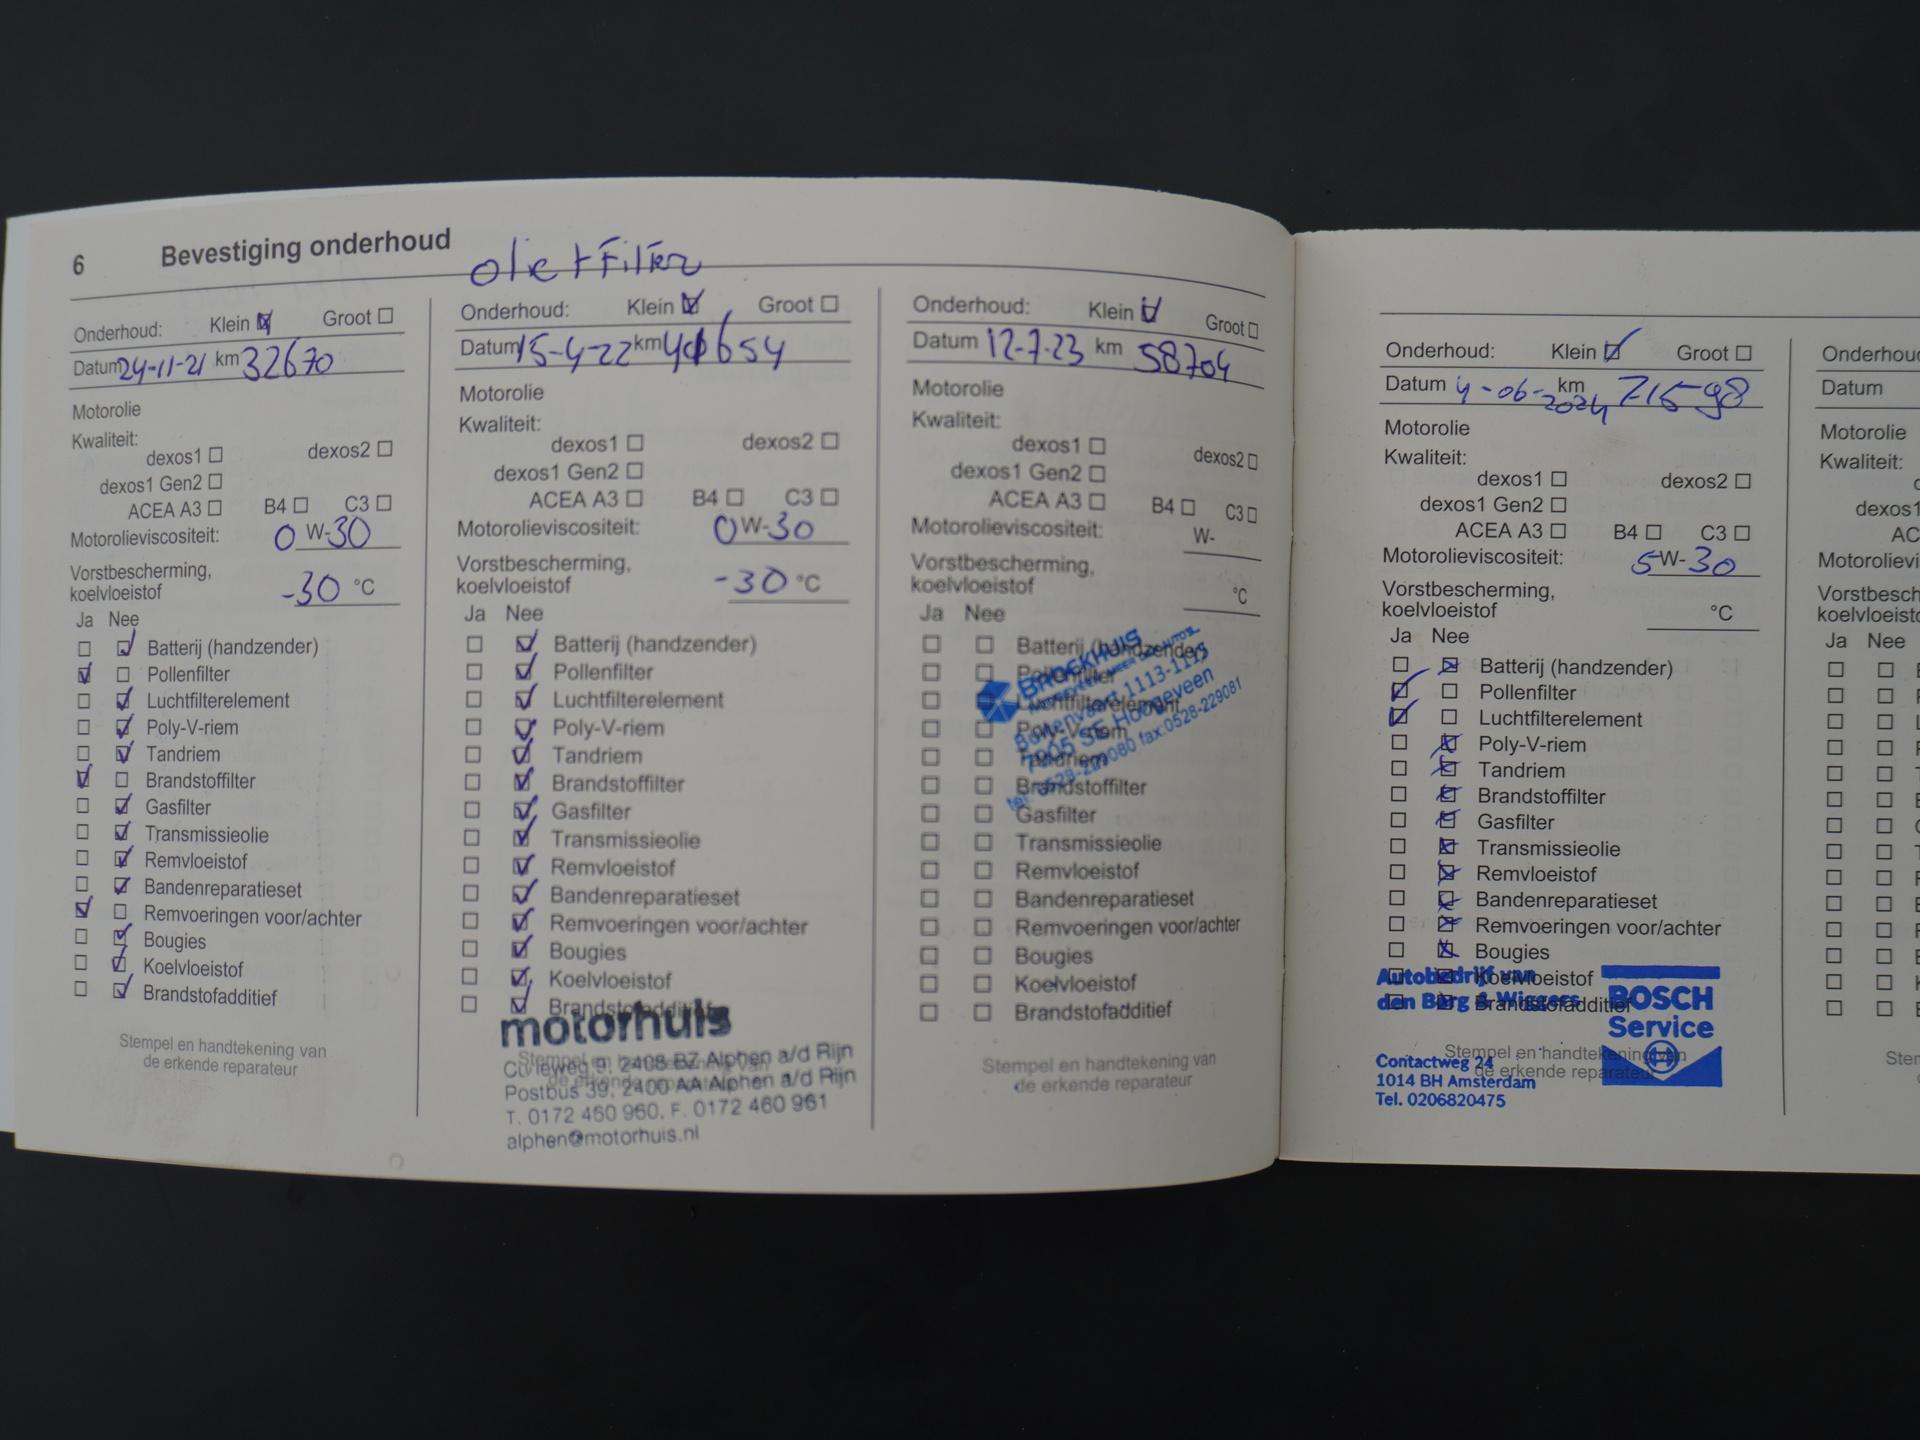 6 Bevestiging onderhoud
olie + Filter
Onderhoud: Klein ☑ Groot ☐
Datum 24-11-21 km 32670
Motorolie
Kwaliteit:
dexos1 ☐ dexos2 ☐
dexos1 Gen2 ☐
ACEA A3 ☐ B4 ☐ C3 ☐
Motorolieviscositeit: 0 W-30
Vorstbescherming,
koelvloeistof -30 °C
Ja Nee
☐ ☑ Batterij (handzender)
☑ ☐ Pollenfilter
☐ ☑ Luchtfilterelement
☐ ☑ Poly-V-riem
☐ ☑ Tandriem
☑ ☐ Brandstoffilter
☐ ☑ Gasfilter
☐ ☑ Transmissieolie
☐ ☑ Remvloeistof
☐ ☑ Bandenreparatieset
☑ ☐ Remvoeringen voor/achter
☐ ☑ Bougies
☐ ☑ Koelvloeistof
☐ ☑ Brandstofadditief
Stempel en handtekening van
de erkende reparateur
Onderhoud: Klein ☑ Groot ☐
Datum 15-4-22 km 654
Motorolie
Kwaliteit:
dexos1 ☐ dexos2 ☐
dexos1 Gen2 ☐
ACEA A3 ☐ B4 ☐ C3 ☐
Motorolieviscositeit: 0 W-30
Vorstbescherming,
koelvloeistof -30 °C
Ja Nee
☐ ☑ Batterij (handzender)
☐ ☑ Pollenfilter
☐ ☑ Luchtfilterelement
☐ ☑ Poly-V-riem
☐ ☑ Tandriem
☐ ☑ Brandstoffilter
☐ ☑ Gasfilter
☐ ☑ Transmissieolie
☐ ☑ Remvloeistof
☐ ☑ Bandenreparatieset
☐ ☑ Remvoeringen voor/achter
☐ ☑ Bougies
☐ ☑ Koelvloeistof
☐ ☑ Brandstofadditief
motorhuis
Stempel en handtekening van
de erkende reparateur
9, 2408 BZ Alphen a/d Rijn
Postbus 39, 2400 AA Alphen a/d Rijn
T. 0172 460 960, F. 0172 460 961
alphen@motorhuis.nl
Onderhoud: Klein ☑ Groot ☐
Datum 12-7-23 km 58704
Motorolie
Kwaliteit:
dexos1 ☐ dexos2 ☐
dexos1 Gen2 ☐
ACEA A3 ☐ B4 ☐ C3 ☐
Motorolieviscositeit: W-
Vorstbescherming,
koelvloeistof °C
Ja Nee
☐ ☐ Batterij (handzender)
☐ ☐ Pollenfilter
☐ ☐ Luchtfilterelement
☐ ☐ Poly-V-riem
☐ ☐ Tandriem
☐ ☐ Brandstoffilter
☐ ☐ Gasfilter
☐ ☐ Transmissieolie
☐ ☐ Remvloeistof
☐ ☐ Bandenreparatieset
☐ ☐ Remvoeringen voor/achter
☐ ☐ Bougies
☐ ☐ Koelvloeistof
☐ ☐ Brandstofadditief
BROEKHUIS
1113-1115
7905 SE Hoogeveen
tel. 0528-229080 fax.0528-229081
Stempel en handtekening van
de erkende reparateur
Onderhoud: Klein ☑ Groot ☐
Datum 4-06-2024 km 71598
Motorolie
Kwaliteit:
dexos1 ☐ dexos2 ☐
dexos1 Gen2 ☐
ACEA A3 ☐ B4 ☐ C3 ☐
Motorolieviscositeit: 5 W-30
Vorstbescherming,
koelvloeistof °C
Ja Nee
☐ ☒ Batterij (handzender)
☑ ☐ Pollenfilter
☑ ☐ Luchtfilterelement
☐ ☒ Poly-V-riem
☐ ☒ Tandriem
☐ ☒ Brandstoffilter
☐ ☒ Gasfilter
☐ ☒ Transmissieolie
☐ ☒ Remvloeistof
☐ ☒ Bandenreparatieset
☐ ☒ Remvoeringen voor/achter
☐ ☒ Bougies
☐ ☒ Koelvloeistof
☐ ☒ Brandstofadditief
Autobedrijf van
den Berg & Wiggers
BOSCH
Service
Stempel en handtekening van
de erkende reparateur
Contactweg 24
1014 BH Amsterdam
Tel. 0206820475
Onderhoud
Datum
Motorolie
Kwaliteit:
dexos1
AC
Motorolievi
Vorstbesch
koelvloeisto
Ja Nee
Stem